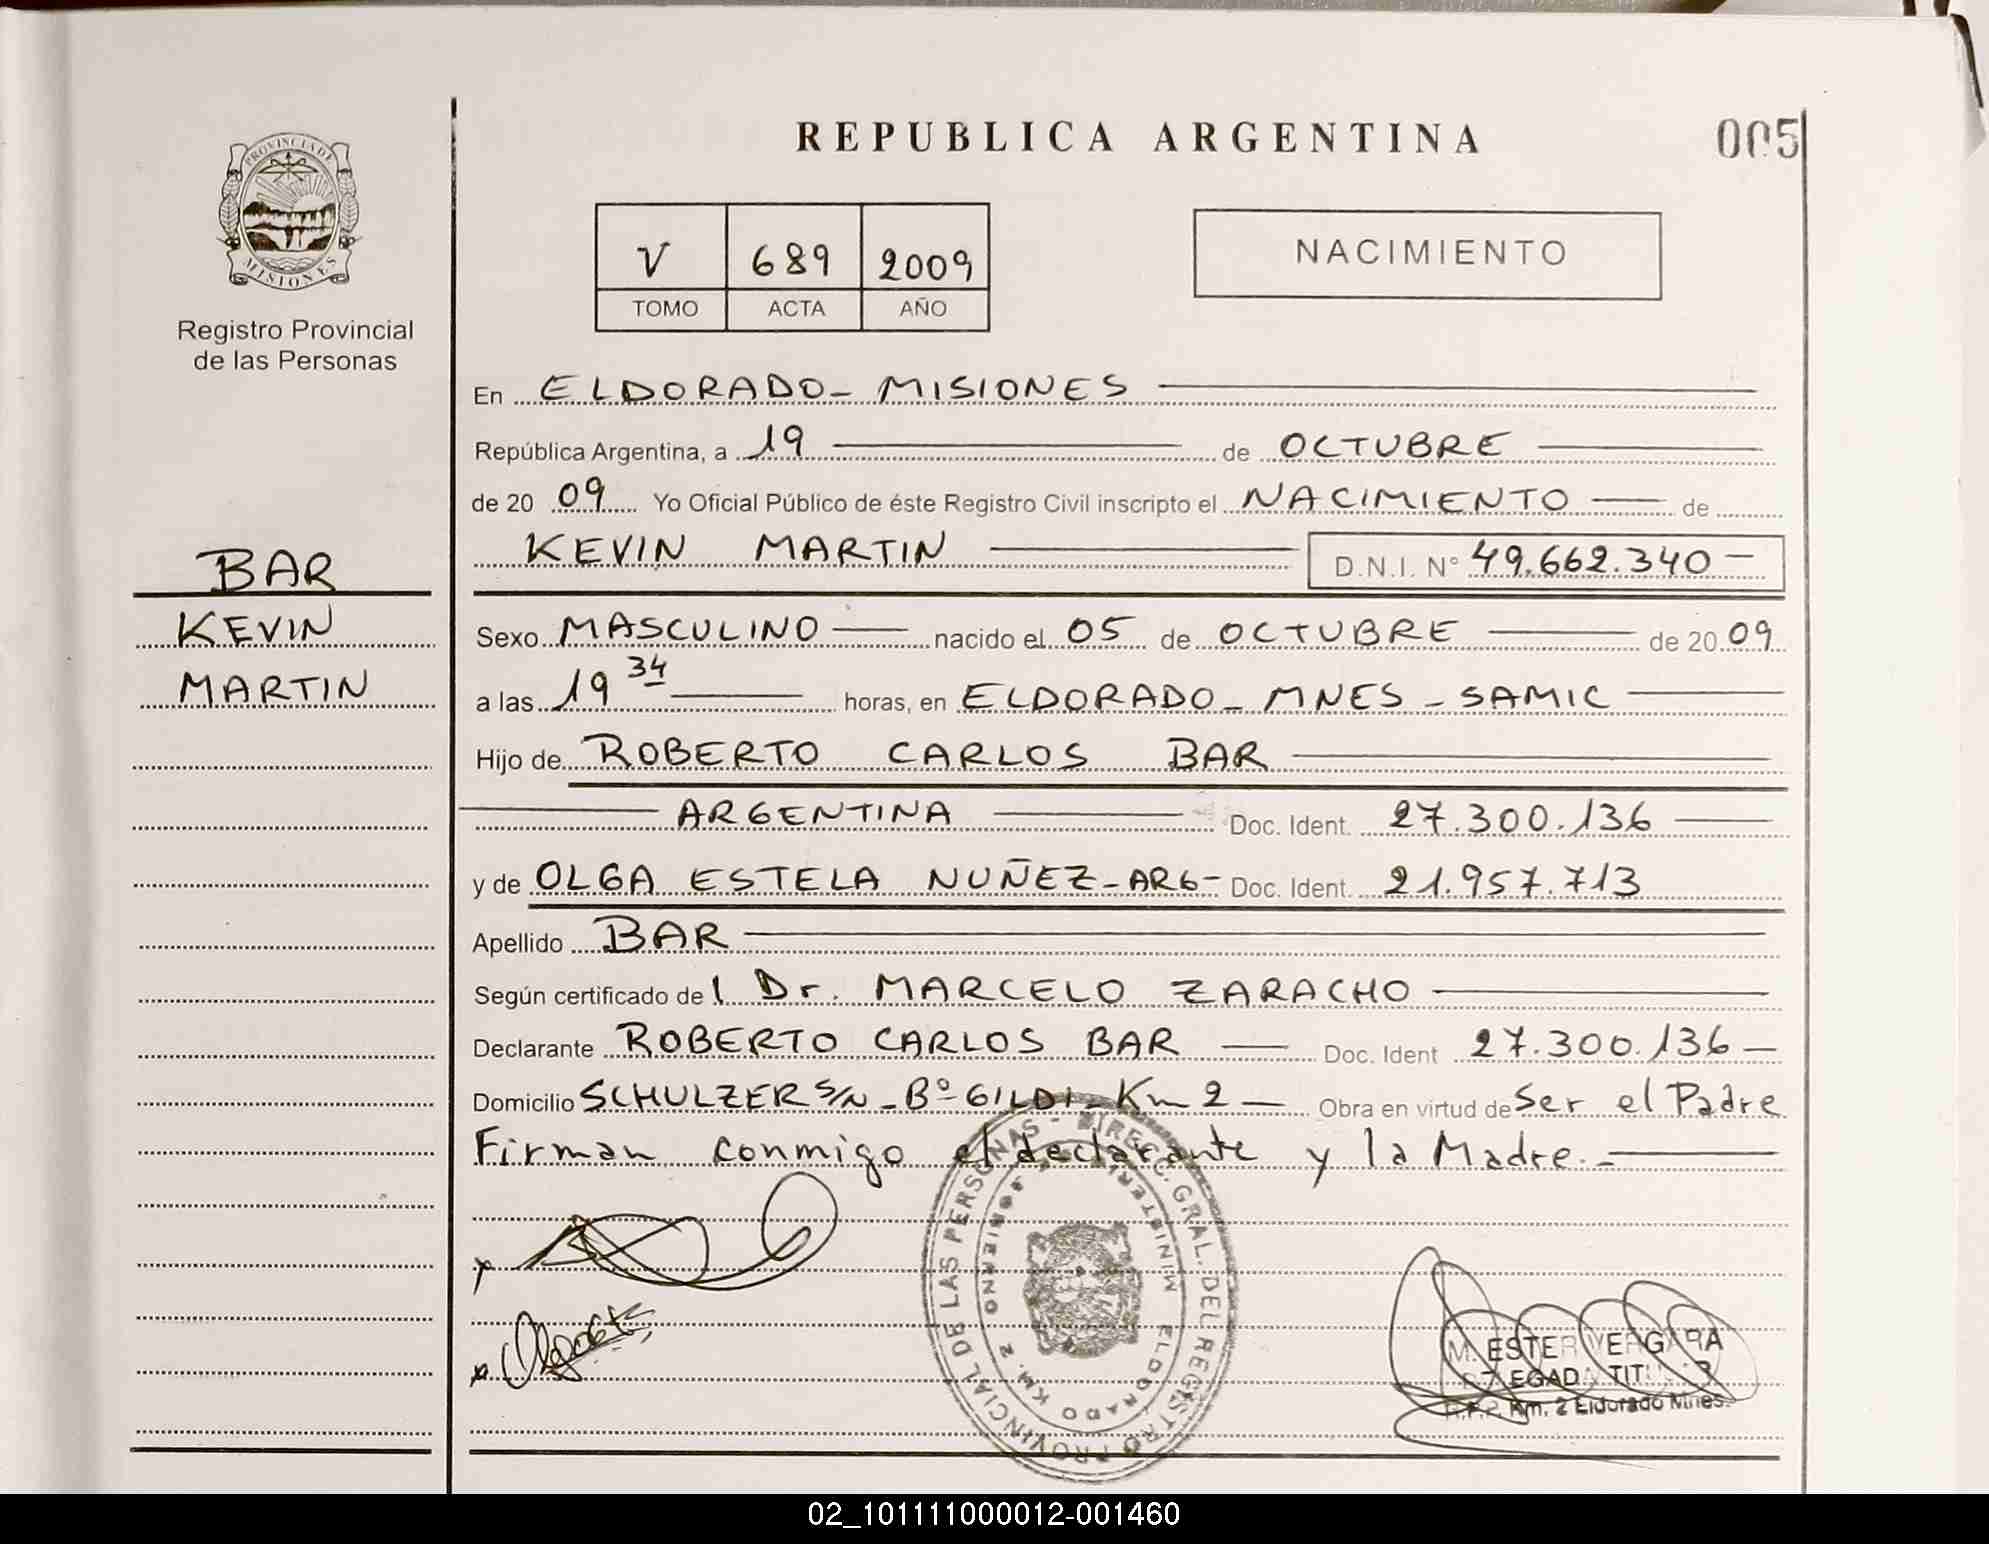 REPUBLICA ARGENTINA
005
PROVINCIA DE
MISIONES
Registro Provincial
de las Personas
V 689 2009
TOMO ACTA AÑO
NACIMIENTO
En ELDORADO - MISIONES
República Argentina, a 19 de OCTUBRE
de 20 09 Yo Oficial Público de éste Registro Civil inscripto el NACIMIENTO de
KEVIN MARTIN D.N.I. N° 49.662.340-
BAR
KEVIN
MARTIN
Sexo MASCULINO nacido el 05 de OCTUBRE de 20 09
a las 19 34 horas, en ELDORADO - MNES - SAMIC
Hijo de ROBERTO CARLOS BAR
ARGENTINA Doc. Ident. 27.300.136
y de OLGA ESTELA NUÑEZ - ARG - Doc. Ident. 21.957.713
Apellido BAR
Según certificado de l Dr. MARCELO ZARACHO
Declarante ROBERTO CARLOS BAR Doc. Ident 27.300.136
Domicilio SCHULZER S/N - B° GILDI - Km 2 Obra en virtud de Ser el Padre
Firman conmigo el declarante y la Madre.-
DIREC. GRAL. DEL REGISTRO PROVINCIAL DE LAS PERSONAS -
ELDORADO KM. 2
M. ESTER VERGARA
DELEGADA TITULAR
R.P.P. Km. 2 Eldorado Mnes.
02_101111000012-001460